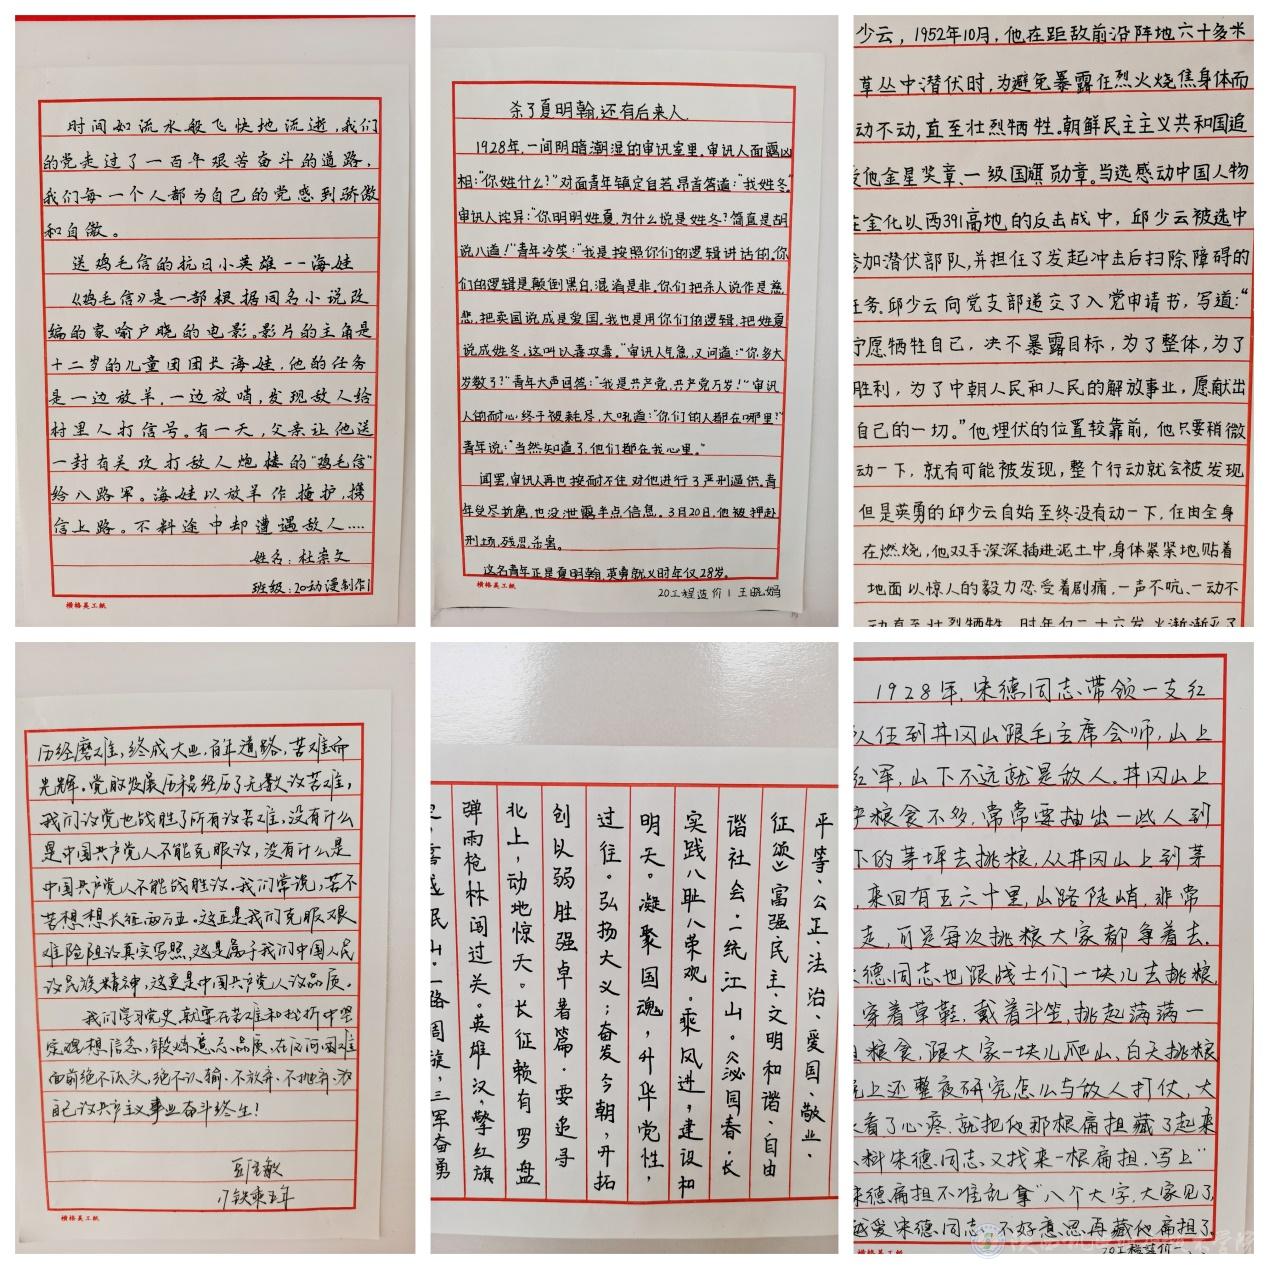 时间如流水般飞快地流逝,我们
的党走过了一百年艰苦奋斗的道路,
我们每一个人都为自己的党感到骄傲
和自傲。
送鸡毛信的抗日小英雄--海娃
《鸡毛信》是一部根据同名小说改
编的家喻户晓的电影。影片的主角是
十二岁的儿童团团长海娃,他的任务
是一边放羊,一边放哨,发现敌人给
村里人打信号。有一天,父亲让他送
一封有关攻打敌人炮楼的"鸡毛信"
给八路军。海娃以放羊作掩护,携
信上路。不料途中却遭遇敌人....
姓名:杜崇文
班级:20动漫制作1
横格美工纸
杀了夏明翰,还有后来人.
1928年,一间阴暗潮湿的审讯室里,审讯人面露凶
相:"你姓什么?"对面青年镇定自若昂首答道:"我姓冬."
审讯人诧异:"你明明姓夏,为什么说是姓冬?简直是胡
说八道!"青年冷笑:"我是按照你们的逻辑讲话的.你
们的逻辑是颠倒黑白,混淆是非.你们把杀人说作是慈
悲,把卖国说成是爱国.我也是用你们的逻辑,把姓夏
说成姓冬,这叫以毒攻毒."审讯人气急,又问道:"你多大
岁数了?"青年大声回答:"我是共产党,共产党万岁!"审讯
人的耐心终于被耗尽,大吼道:"你们的人都在哪里?"
青年说:"当然知道了,他们都在我心里."
闻罢,审讯人再也按耐不住对他进行了严刑逼供.青
年受尽折磨,也没泄露半点信息.3月20日,他被押赴
刑场,残忍杀害。
这名青年正是夏明翰,英勇就义时年仅28岁。
横格美工纸
20工程造价1 王晓娟
少云,1952年10月,他在距敌前沿阵地六十多米
草丛中潜伏时,为避免暴露任烈火烧焦身体而
动不动,直至壮烈牺牲。朝鲜民主主义共和国追
他金星奖章、一级国旗勋章。当选感动中国人物
在金化以西391高地的反击战中,邱少云被选中
参加潜伏部队,并担任了发起冲击后扫除障碍的
任务.邱少云向党支部递交了入党申请书,写道:"
宁愿牺牲自己,决不暴露目标,为了整体,为了
胜利,为了中朝人民和人民的解放事业,愿献出
自己的一切。"他埋伏的位置较靠前,他只要稍微
动一下,就有可能被发现,整个行动就会被发现
但是英勇的邱少云自始至终没有动一下,任由全身
在燃烧,他双手深深插进泥土中,身体紧紧地贴着
地面以惊人的毅力忍受着剧痛,一声不吭、一动不
动直至壮烈牺牲,时年仅二十六岁
历经磨难,终成大业,百年道路,苦难而
光辉。党的发展历程经历了无数次苦难,
我们的党也战胜了所有的苦难,没有什么
是中国共产党人不能克服的,没有什么是
中国共产党人不能战胜的.我们常说,苦不
苦想想长征两万五.这正是我们克服艰
难险阻的真实写照,这是属于我们中国人民
的民族精神,这更是中国共产党人的品质。
我们学习党史就要在苦难和挫折中坚
定理想信念,锻炼意志品质,在任何困难
面前绝不低头,绝不认输、不放弃、不抛弃、为
自己的共产主义事业奋斗终生!
17铁乘五年
横格美工纸
平等、公正、法治、爱国、敬业、
征颂》富强民主、文明和谐、自由
谐社会;一统江山。《沁园春·长
实践八耻八荣观。乘风进,建设和
明天。凝聚国魂,升华党性,
过往。弘扬大义;奋发今朝,开拓
创以弱胜强卓著篇。要追寻
北上,动地惊天。长征赖有罗盘
弹雨枪林闯过关。英雄汉,擎红旗
岷山。一路周旋,三军奋勇
1928年,宋德同志带领一支红
队伍到井冈山跟毛主席会师,山上
红军,山下不远就是敌人。井冈山上
产粮食不多,常常要抽出一些人到
下的茅坪去挑粮,从井冈山上到茅
,来回有五六十里,山路陡峭,非常
走,可是每次挑粮大家都争着去.
德同志也跟战士们一块儿去挑粮,
穿着草鞋,戴着斗笠,挑起满满一
粮食,跟大家一块儿爬山,白天挑粮
晚上还整夜研究怎么与敌人打仗,大
看了心疼,就把他那根扁担藏了起来
料朱德同志又找来一根扁担,写上"
朱德扁担不准乱拿"八个大字,大家见了,
越爱宋德同志,不好意思再藏他扁担了.
横格美工纸
20工程造价一